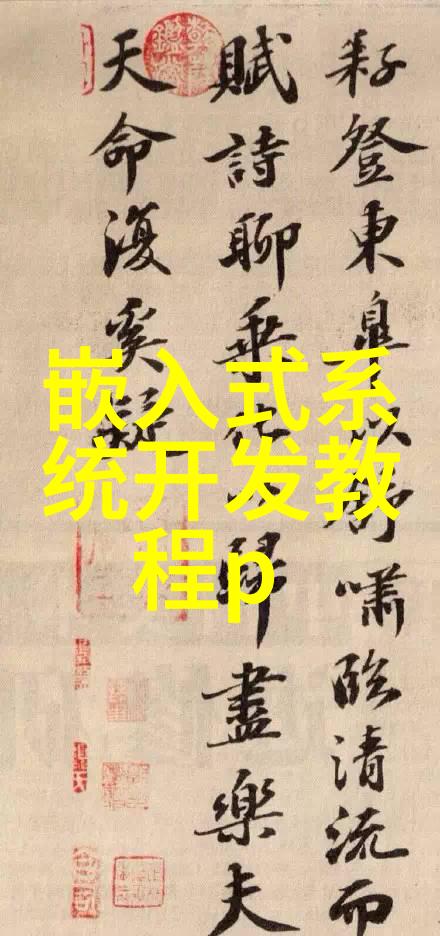 嵌入式系
统开发教
程p
耔登東皐以舒嘯臨清流而
賦詩聊乗化以歸盡樂夫
天命復奚疑